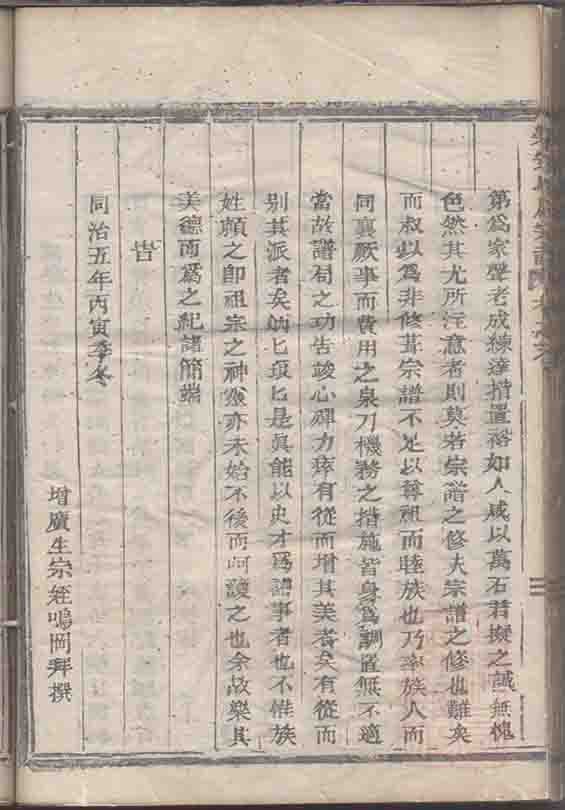 第爲家聲老成練達措置裕如人咸以萬石君擬之誠無愧
色然其尤所注意者則莫若宗譜之修夫宗譜之修也難矣
而叔以爲非修葺宗譜不足以尊祖而睦族也乃率族人而
同襄厥事而費用之泉刀機務之措施皆身爲調置無不適
當故譜局之功告竣心殫力瘁有從而增其美者矣有從而
別其派者矣紈匕珢匕是眞能以史才爲譜事者也不惟族
姓願之卽祖宗之神靈亦未始不後而呵護之也余故樂其
美德而爲之紀諸簡端
旹
同治五年丙寅季冬
增廣生宗姪鳴岡拜撰